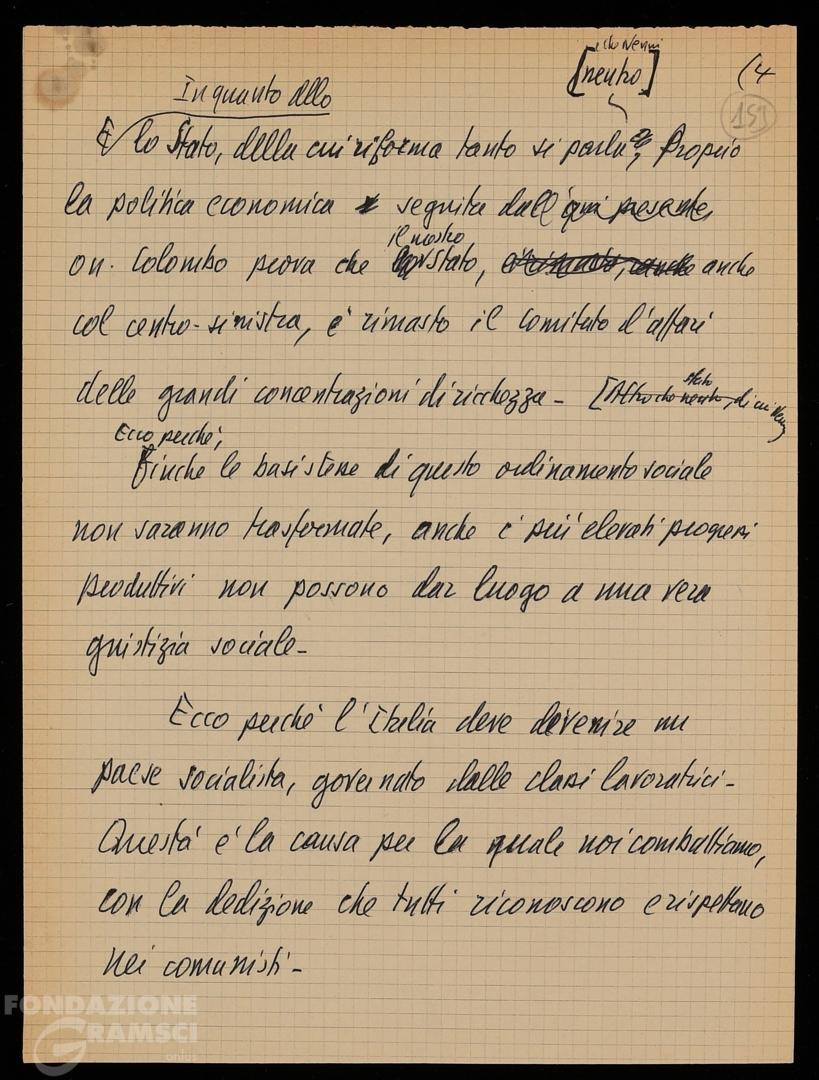 e lo Nenni
[neutro]
(4
159
In quanto allo
E lo Stato, della cui riforma tanto si parla, Proprio
la politica economica seguita dall'qui presente,
on. Colombo prova che il nostro Stato, anche
col centro-sinistra, è rimasto il comitato d'affari
delle grandi concentrazioni di ricchezza - [Altro che stato neutro, di cui
Ecco perché,
finché le basi stesse di questo ordinamento sociale
non saranno trasformate, anche i più elevati progressi
produttivi non possono dar luogo a una vera
giustizia sociale -
Ecco perché l'Italia deve divenire un
paese socialista, governato dalle classi lavoratrici -
Questa è la causa per la quale noi combattiamo,
con la dedizione che tutti riconoscono e rispettano
nei comunisti -
FONDAZIONE
GRAMSCI
onlus